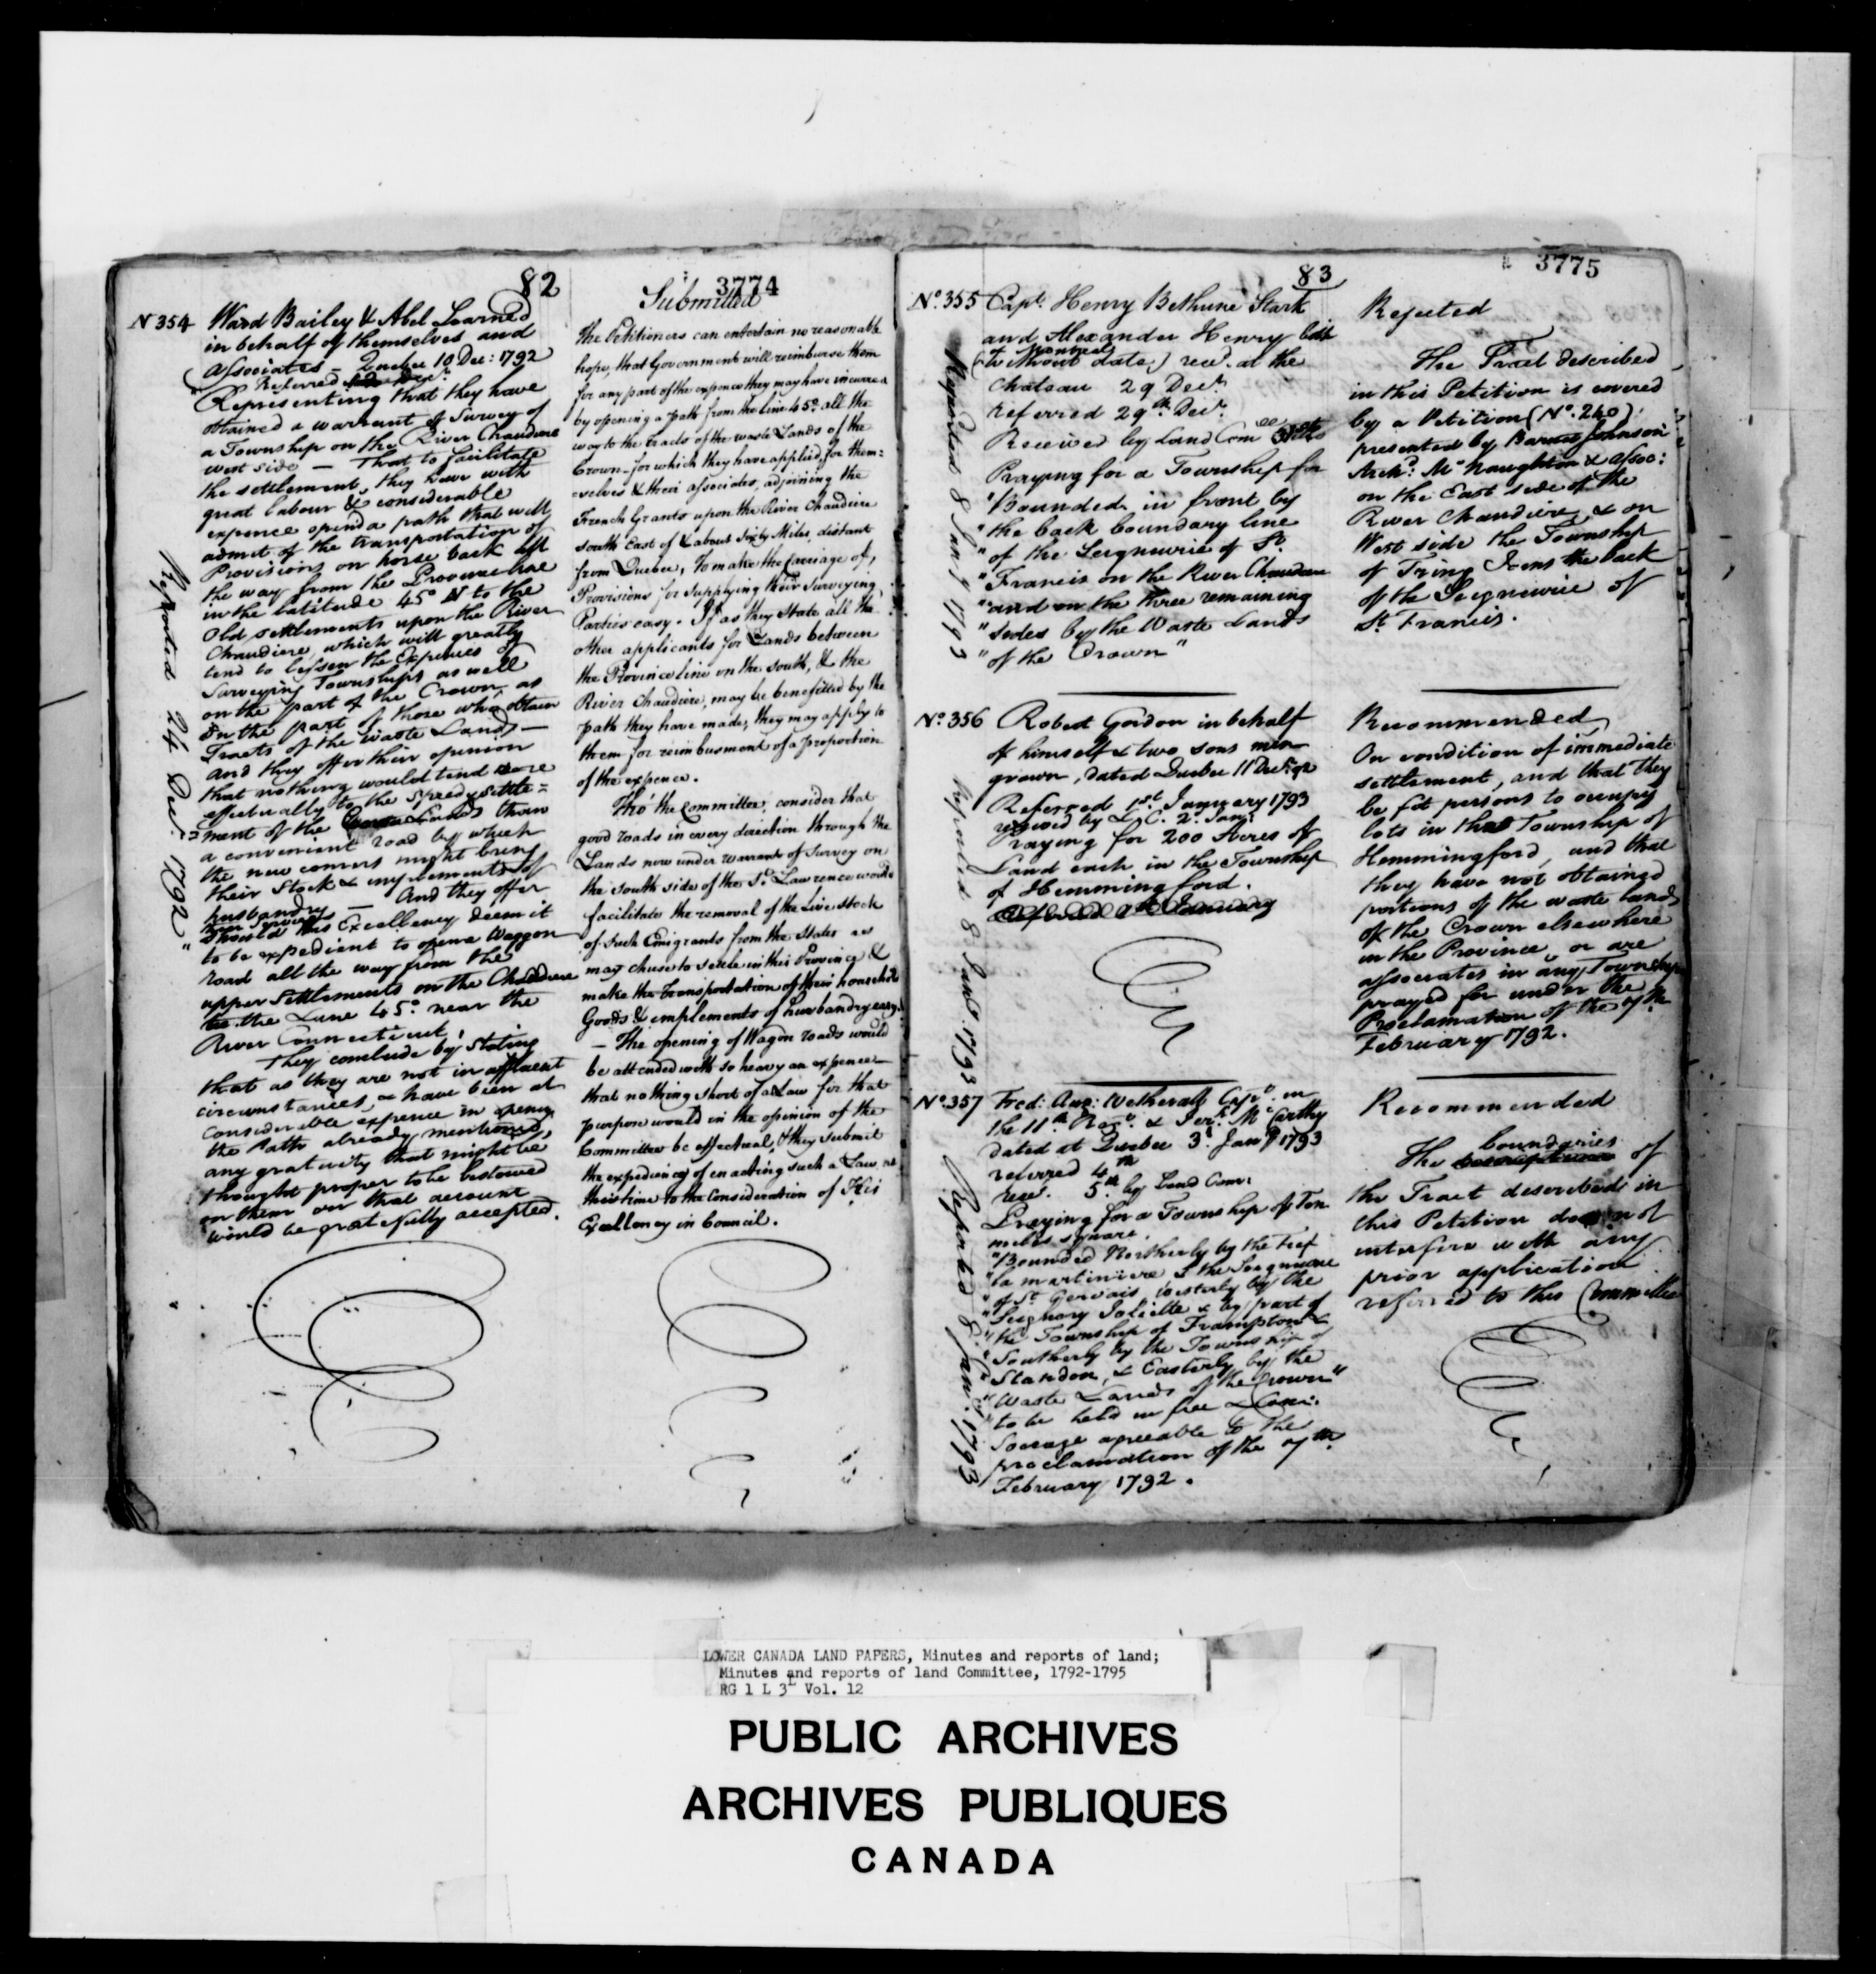 82
3774
N 354 Ward Bailey & Abel Learned
in behalf of themselves and
associates — Quebec 10 Dec: 1792
(Referred
"Representing that they have
obtained a warrant of Survey of
a Township on the River Chaudiere
west side — That to facilitate
the settlement, they have with
great labour & considerable
expence opend a path that will
admit of the transportation of
Provisions on horse back all
the way from the Province line
in the Latitude 45° N to the
Old settlements upon the River
Chaudiere, which will greatly
tend to lessen the Expences of
Surveying Townships as well
on the part of the Crown, as
on the part of those who obtain
Tracts of the waste Lands —
and they offer their opinion
that nothing would tend more
effectually to the speedy settle=
=ment of the Lands than
a convenient road by which
the new comers might bring
their Stock & implements of
husbandry — And they offer
their services
should His Excellency deem it
to be expedient to open a Waggon
road all the way from the
upper Settlements on the Chaudiere
to the Line 45° near the
River Connecticut,
They conclude by Stating
that as they are not in affluent
circumstances, & have been at
considerable expence in opening
the Path already mentioned,
any gratuity that might be
thought proper to be bestowed
on them on that account
would be gratefully accepted.
Reported 24 Decr. 1792"
Submitted
The Petitioners can entertain no reasonable
hope, that Government will reimburse them
for any part of the expence they may have incurred
by opening a path from the line 45° all the
way to the tracts of the waste Lands of the
Crown for which they have applied, for them=
=selves & their associates, adjoining the
French Grants upon the River Chaudiere
South East of & about Sixty Miles, distant
from Quebec, To make the carriage of,
Provisions for supplying their Surveying
Parties easy. If as they State all the
other applicants for Lands between
the Province line on the south, & the
River Chaudiere, may be benefitted by the
path they have made, they may apply to
them for reimbursment of a proportion
of the expence.
Tho' the Committee consider that
good roads in every direction through the
Lands now under warrants of Survey on
the south side of the St. Lawrence would
facilitate the removal of the Live stock
of such Emigrants from the States as
may chuse to settle in this Province &
make the transportation of their household
Goods & implements of husbandry easy.
— The opening of Wagon roads would
be attended with so heavy an expence —
that nothing short of a Law for that
purpose would in the opinion of the
Committee be effectual, & they submit
the expediency of enacting such a Law at
this time to the Consideration of His
Excellency in Council.
83
3775
No. 355 Capt. Henry Bethune Stark
and Alexander Henry
of Montreal
(without date) recd. at the
Chateau 29 Decr.
referred 29th Decr.
Received by Land Comee
Praying for a Township for
"Bounded in front by
"the back boundary line
"of the Seigneurie of St.
"Francis on the River Chaudiere
"and on the three remaining
"sides by the Waste Lands
"of the Crown"
Reported 8 Jany 1793
Rejected
The Tract described
in this Petition is covered
by a Petition (No. 240)
presented by Barnes Johnson
Archd: McNaughton & assoc:
on the East side of the
River Chaudiere, & on
West side the Township
of Tring Joins the back
of the Seigneurie of
St. Francis.
No. 356 Robert Gordon in behalf
of himself & two sons men
grown, dated Quebec 11 Decr. 92
Referred 1st January 1793
received by L. C. 2. Jany
Praying for 200 Acres of
Land each in the Township
of Hemmingford.
January
Reported 8 Jany. 1793
Recommended
On condition of immediate
settlement, and that they
be fit persons to occupy
lots in that Township of
Hemmingford, and that
they have not obtained
portions of the waste lands
of the Crown elsewhere
in the Province, or are
associates in any Township
prayed for under the
Proclamation of the 7th
February 1792.
No. 357 Fred: Aug: Wetherall Capn. in
the 11th Regt. & Jer. McCarthy
dated at Quebec 3d. Jany 1793
referred 4th
recd. 5th by Land Com:
Praying for a Township of Ten
miles square.
"Bounded Northerly by the Fief
"la martiniere & the Seigneurie
"of St. Gervais, westerly by the
"Seignory Joliette & by part of
"the Township of Frampton &
"Southerly by the Township of
"Standon, & Easterly by the
"Waste Lands of the Crown"
to be held in free & Com:
Soccage agreeable to the
proclamation of the 7th
February 1792.
Reported 8 Jany. 1793
Recommended
The boundaries of
the Tract described in
this Petition does not
interfere with any
prior application
referred to this Committee
LOWER CANADA LAND PAPERS, Minutes and reports of land;
Minutes and reports of land Committee, 1792-1795
RG 1 L 3L Vol. 12
PUBLIC ARCHIVES
ARCHIVES PUBLIQUES
CANADA